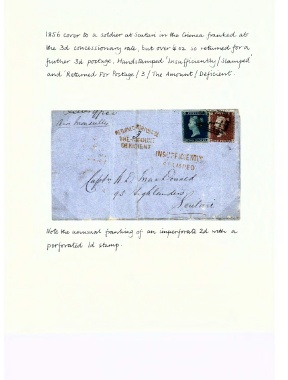 1856 cover to a soldier at Scutari in the Crimea franked at
the 3d concessionary rate, but over ¼ oz so returned for a
further 3d postage. Handstamped 'Insufficiently/Stamped
and Returned For Postage/3/The Amount/Deficient.
Via Marseilles
RETURNED FOR POSTAGE
3
THE AMOUNT
DEFICIENT
INSUFFICIENTLY
STAMPED
Captn A. L. MacDonald
93 Highlanders
Scutari
Note the unusual franking of an imperforate 2d with a
perforated 1d stamp.